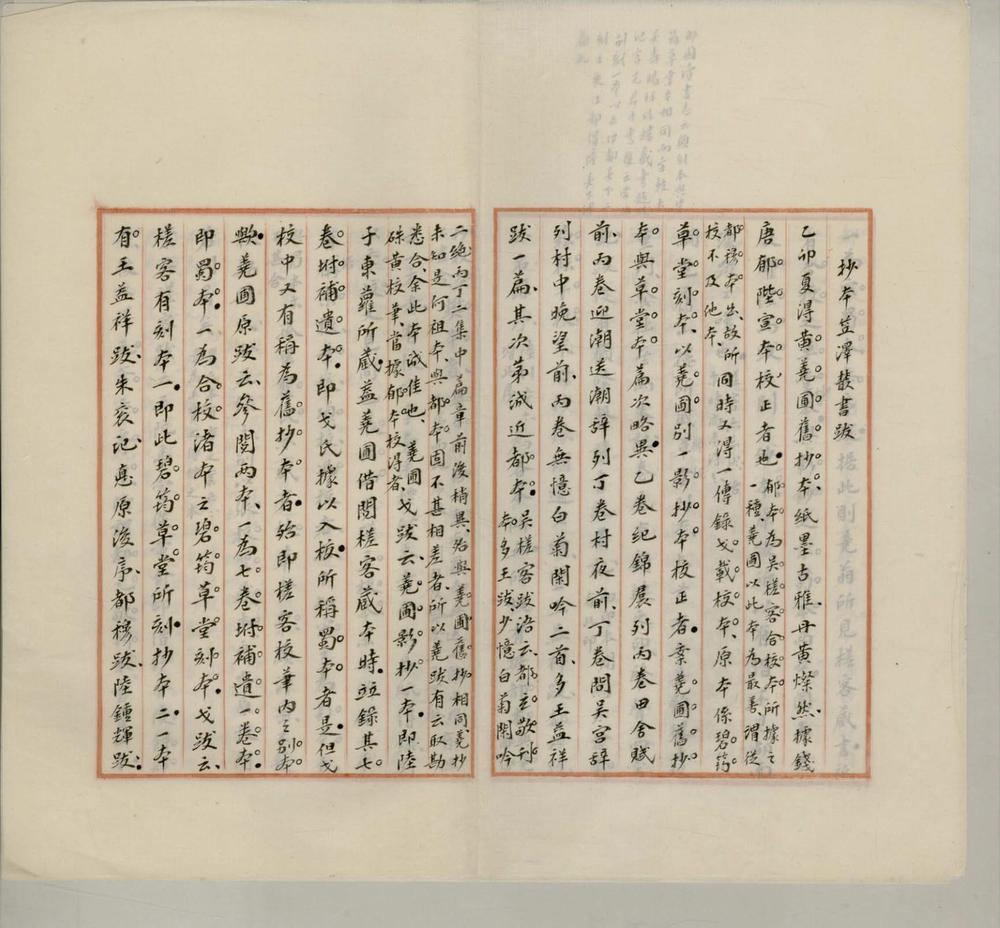 一抄本笠澤叢書跋
乙卯夏得黃蕘圃舊抄本紙墨古雅丹黃燦然據錢
唐郁陛宣本校正者也郁本為吳槎客合校本所據之
一種蕘圃以此本為最善謂從
都穆本出故所
校不及他本同時又得一傳錄戈載校本原本係碧筠
草堂刻本以蕘圃別一影抄本校正者案蕘圃舊抄
本與草堂本篇次略異乙卷紀錦裙列丙卷田舍賦
前丙卷迎潮送潮辭列丁卷村夜前丁卷問吳宮辭
列村中晚望前丙卷無憶白菊閑吟二首多王益祥
跋一篇其次第誠近都本吳槎客跋語云都玄敬刊
本多王跋少憶白菊閑吟
二絕丙丁二集中篇章前後稍異殆與蕘圃舊抄相同蕘抄
未知是何祖本與都本固不甚相差者所以蕘跋有云取勘
悉合余此本誠佳也蕘圃
硃黃校筆當據郁本校得者戈跋云蕘圃影抄一本即陸
子東蘿所藏蓋蕘圃借閱槎客藏本時並錄其七
卷坿補遺本即戈氏據以入校所稱蜀本者是但戈
校中又有稱為舊抄本者殆即槎客校筆內之別本
歟蕘圃原跋云參閱兩本一為七卷坿補遺一卷本
即蜀本一為合校渚本之碧筠草堂刻本戈跋云
槎客有刻本一即此碧筠草堂所刻抄本二一本
有王益祥跋朱袞記惪原後序都穆跋陸鍾輝跋